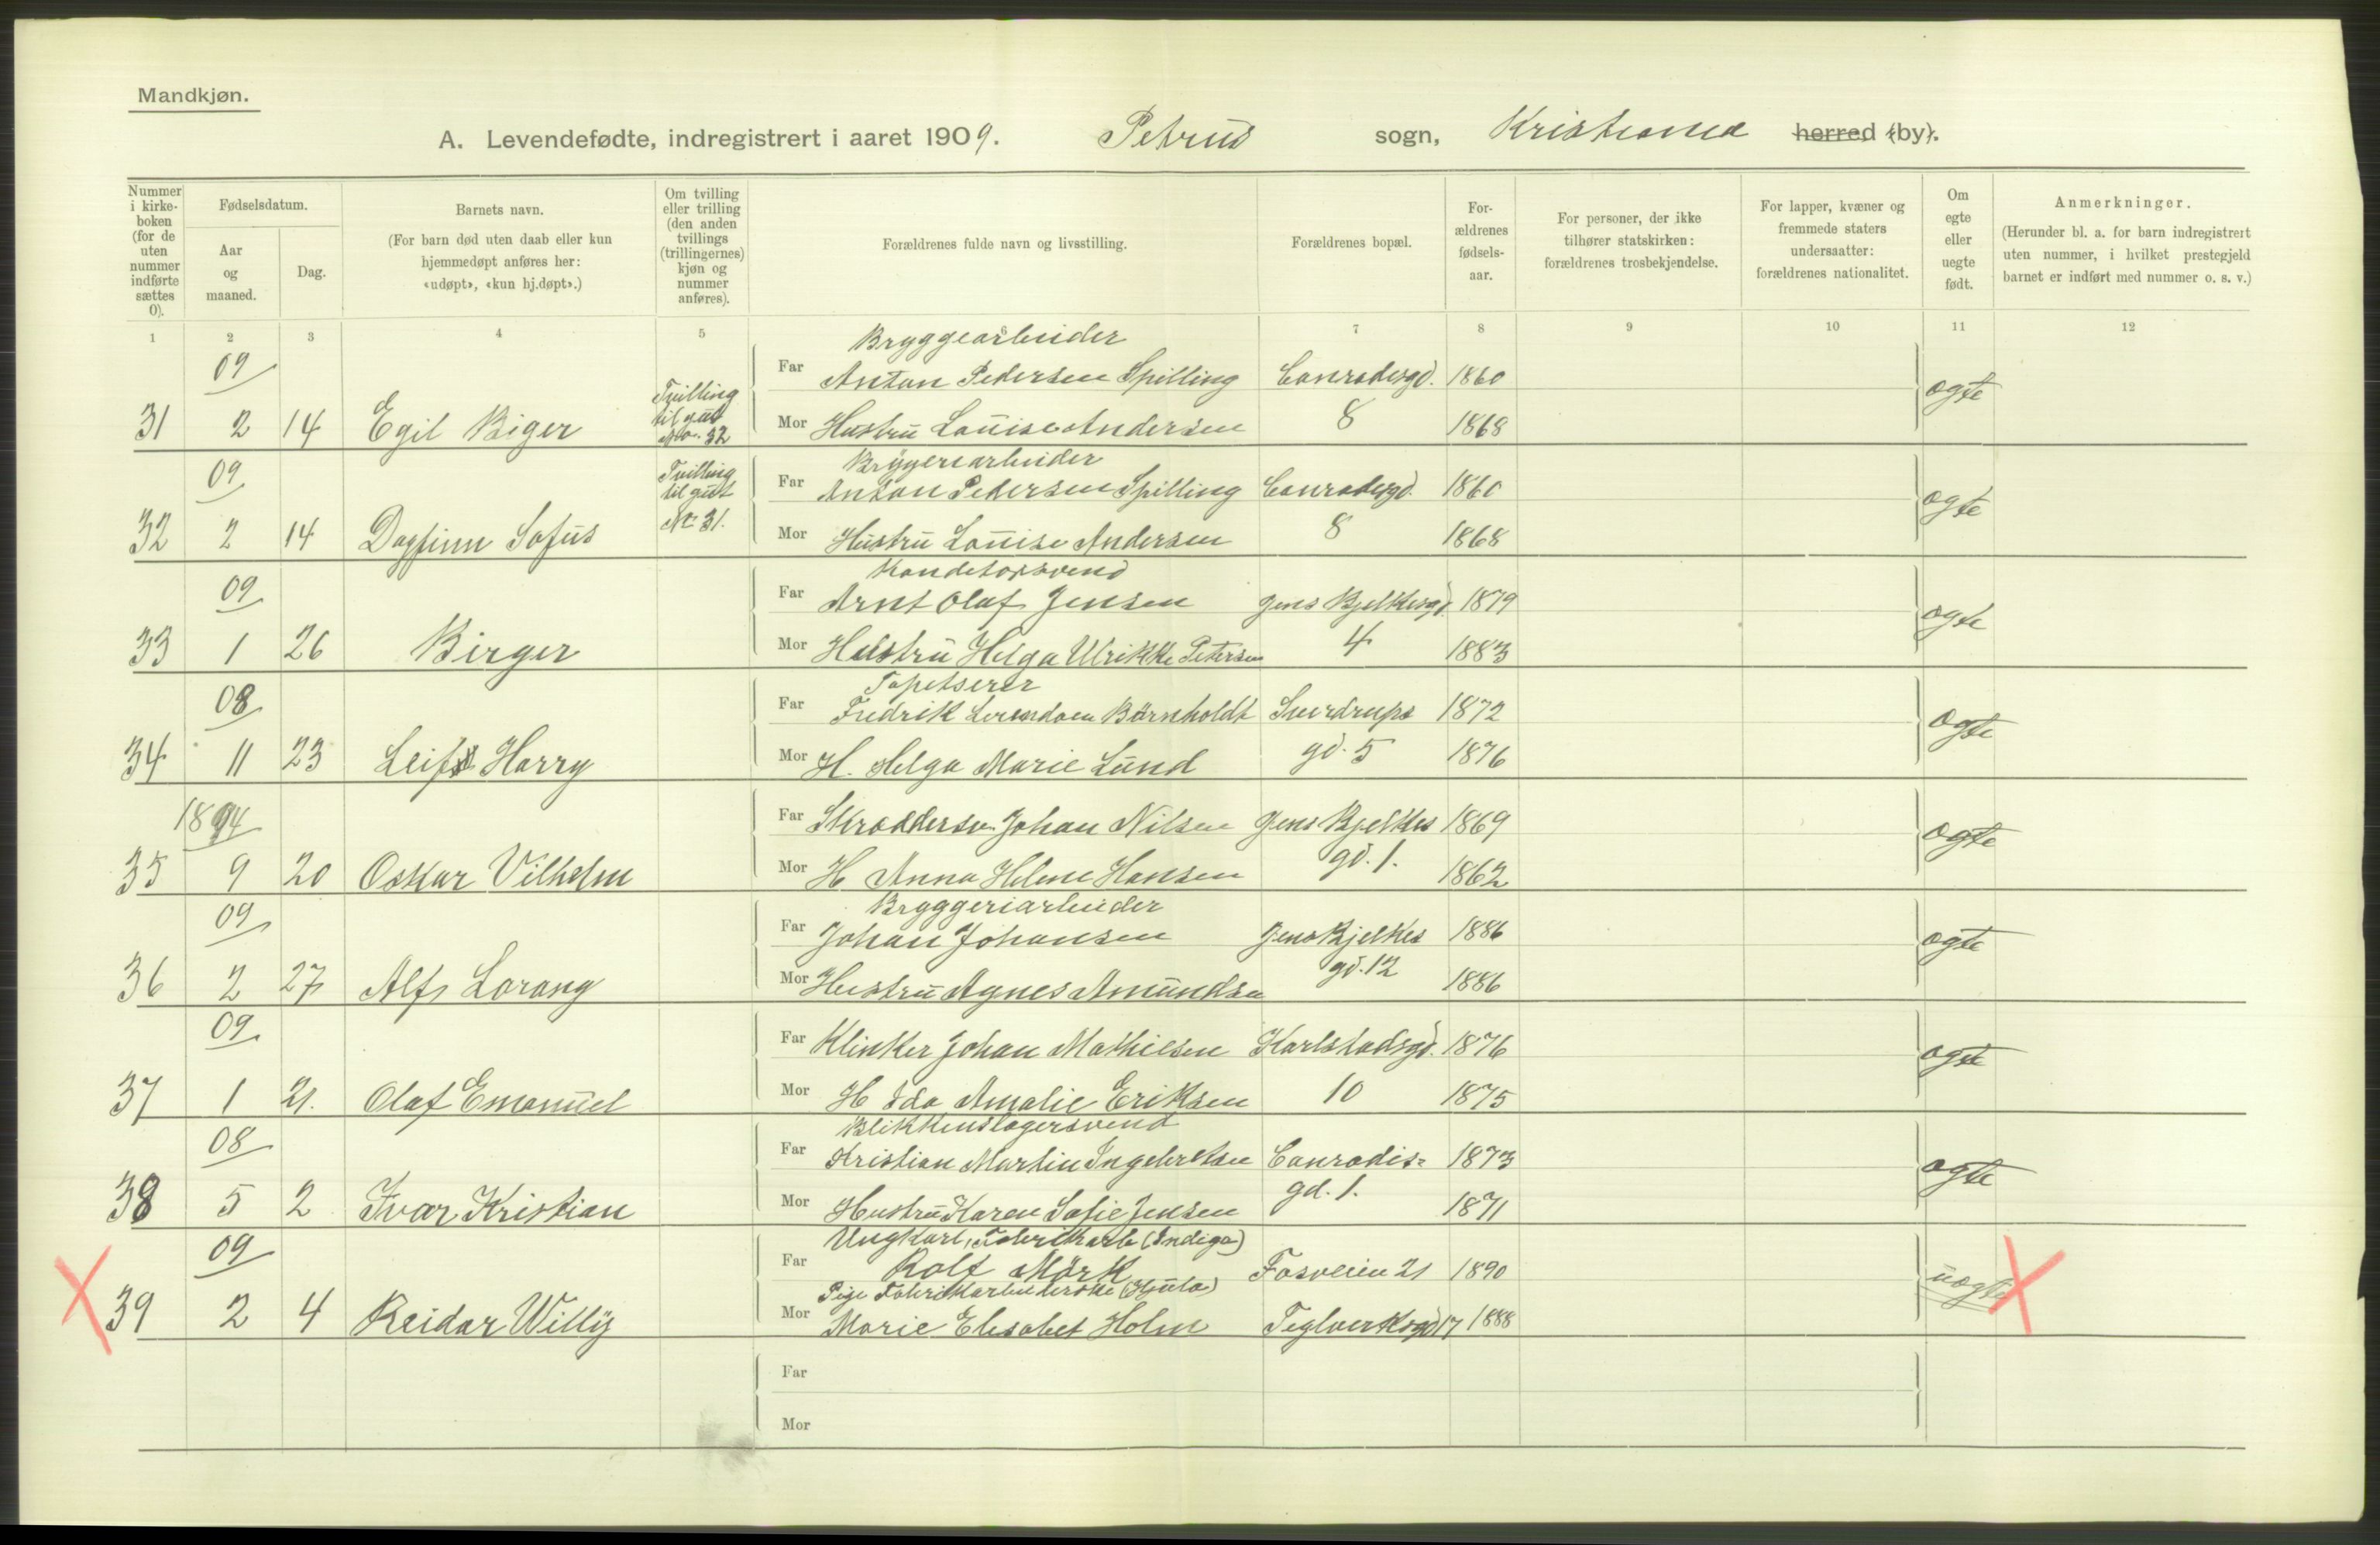 Mandkjøn.
A. Levendefødte, indregistrert i aaret 1909. Petrus sogn, Kristiania herred (by).
Nummer i kirke-boken (for de uten nummer indførte sættes 0).
Fødselsdatum.
Aar og maaned.
Dag.
Barnets navn.
(For barn død uten daab eller kun hjemmedøpt anføres her: «udøpt», «kun hj.døpt».)
Om tvilling eller trilling (den anden tvillings (trillingernes) kjøn og nummer anføres).
Forældrenes fulde navn og livsstilling.
Forældrenes bopæl.
For-ældrenes fødsels-aar.
For personer, der ikke tilhører statskirken: forældrenes trosbekjendelse.
For lapper, kvæner og fremmede staters undersaatter: forældrenes nationalitet.
Om egte eller uegte født.
Anmerkninger.
(Herunder bl. a. for barn indregistrert uten nummer, i hvilket prestegjeld barnet er indført med nummer o. s. v.)
1 2 3 4 5 6 7 8 9 10 11 12
09 Bryggearbeider
Far Anton Pedersen Spilling Conradisgd. 1860 ægte
31 2 14 Egil Biger Tvilling til gut No. 32 Mor Hustru Louise Andersen 8 1868
09 Bryggeriarbeider
Far Anton Pedersen Spilling Conradisgd. 1860 ægte
32 2 14 Dagfinn Sofus Tvilling til gut No 31. Mor Hustru Louise Andersen 8 1868
09 Konditorsvend
Far Arnt Olaf Jensen Jens Bjelkesgd. 1879 ægte
33 1 26 Birger Mor Hustru Helga Ulrikke Petersen 4 1883
08 Tapetserer
Far Fredrik Bärnholdt Sverdrups 1872 ægte
34 11 23 Leif Harry Mor H. Helga Marie Lund gd. 5 1876
1894 Far Skräddersv. Johan Nilsen Jens Bjelkes 1869 ægte
35 9 20 Oskar Vilhelm Mor H. Anna Helene Hansen gd. 1. 1862
09 Bryggeriarbeider
Far Johan Johansen Jens Bjelkes 1886 ægte
36 2 27 Alf Lorang Mor Hustru Agnes Amundsen gd. 12 1886
09 Far Klinker Johan Mathisen Karlstadsgd. 1876 ægte
37 1 21. Olaf Emanuel Mor H Ida Amalie Eriksen 10 1875
08 Blikkenslagersvend
Far Kristian Martin Ingebretsen Conradis- 1873 ægte
38 5 2 Ivar Kristian Mor Hustru Karen Sofie Jensen gd. 1. 1871
09 Ungkarl, Fabrikarb (Indigo)
Far Rolf Mörk Fosveien 21 1890 uægte
Pige Fabrikarbeiderske (Hjula)
39 2 4 Reidar Willy Mor Marie Elisabet Holm Teglverksgd 17 1888
Far
Mor